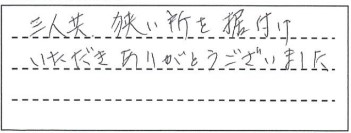 三人共 狭い所を 据付け
いただき ありがとうございました